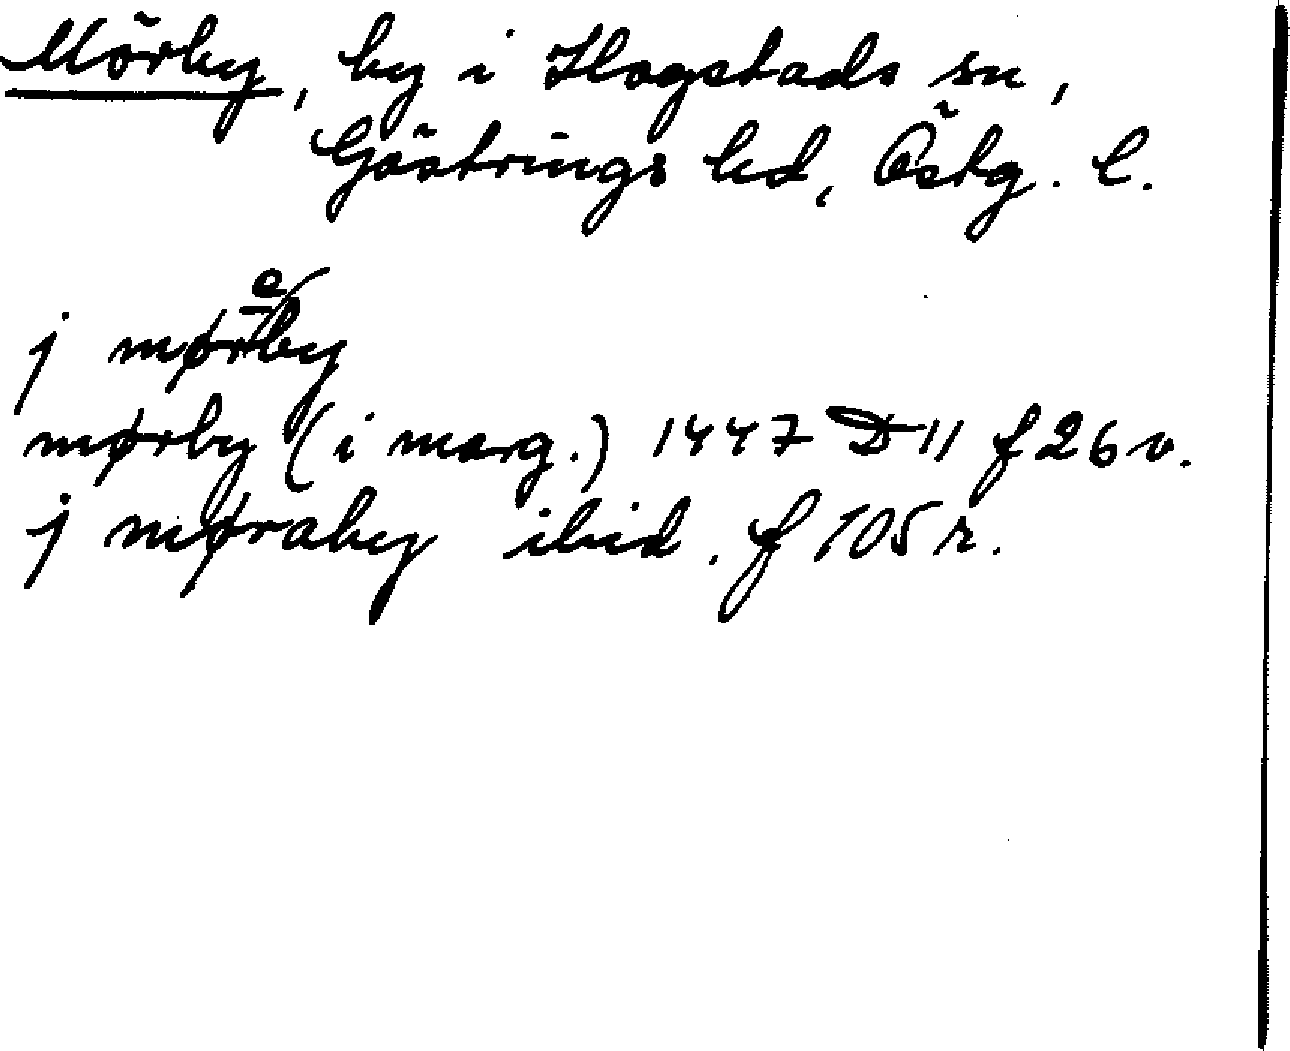 Mörby, by i Hogstads sn,
Göstrings hd, Östg. l.
j møreby
mørby (i marg.) 1447 D 11 f 26 v.
j møraby ibid. f 105 r.